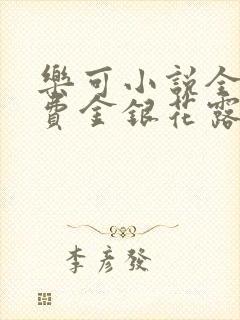 樂可小說全
費金銀花露
李彥發